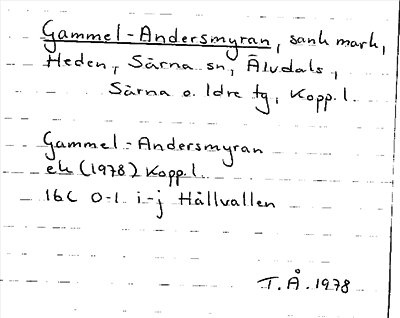 Gammel-Andersmyran, sank mark,
Heden, Särna sn, Älvdals,
Särna o. Idre tg, Kopp. l.
Gammel-Andersmyran
ek (1978) Kopp. l.
16C 0-1 i-j Hållvallen
T.Å. 1978